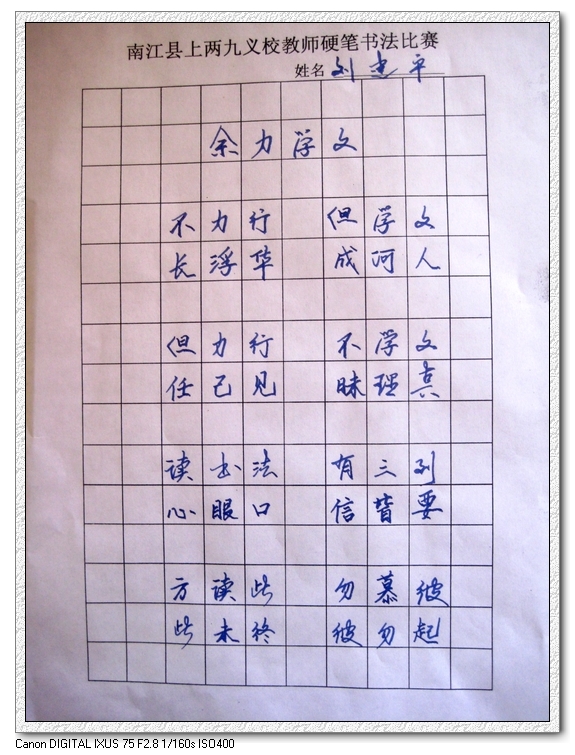 南江县上两九义校教师硬笔书法比赛
姓名 刘建平
余力学文
不力行 但学文
长浮华 成河人
但力行 不学文
任己见 昧理真
读书法 有三到
心眼口 信皆要
方读此 勿慕彼
此未终 彼勿起
Canon DIGITAL IXUS 75 F2.8 1/160s ISO400